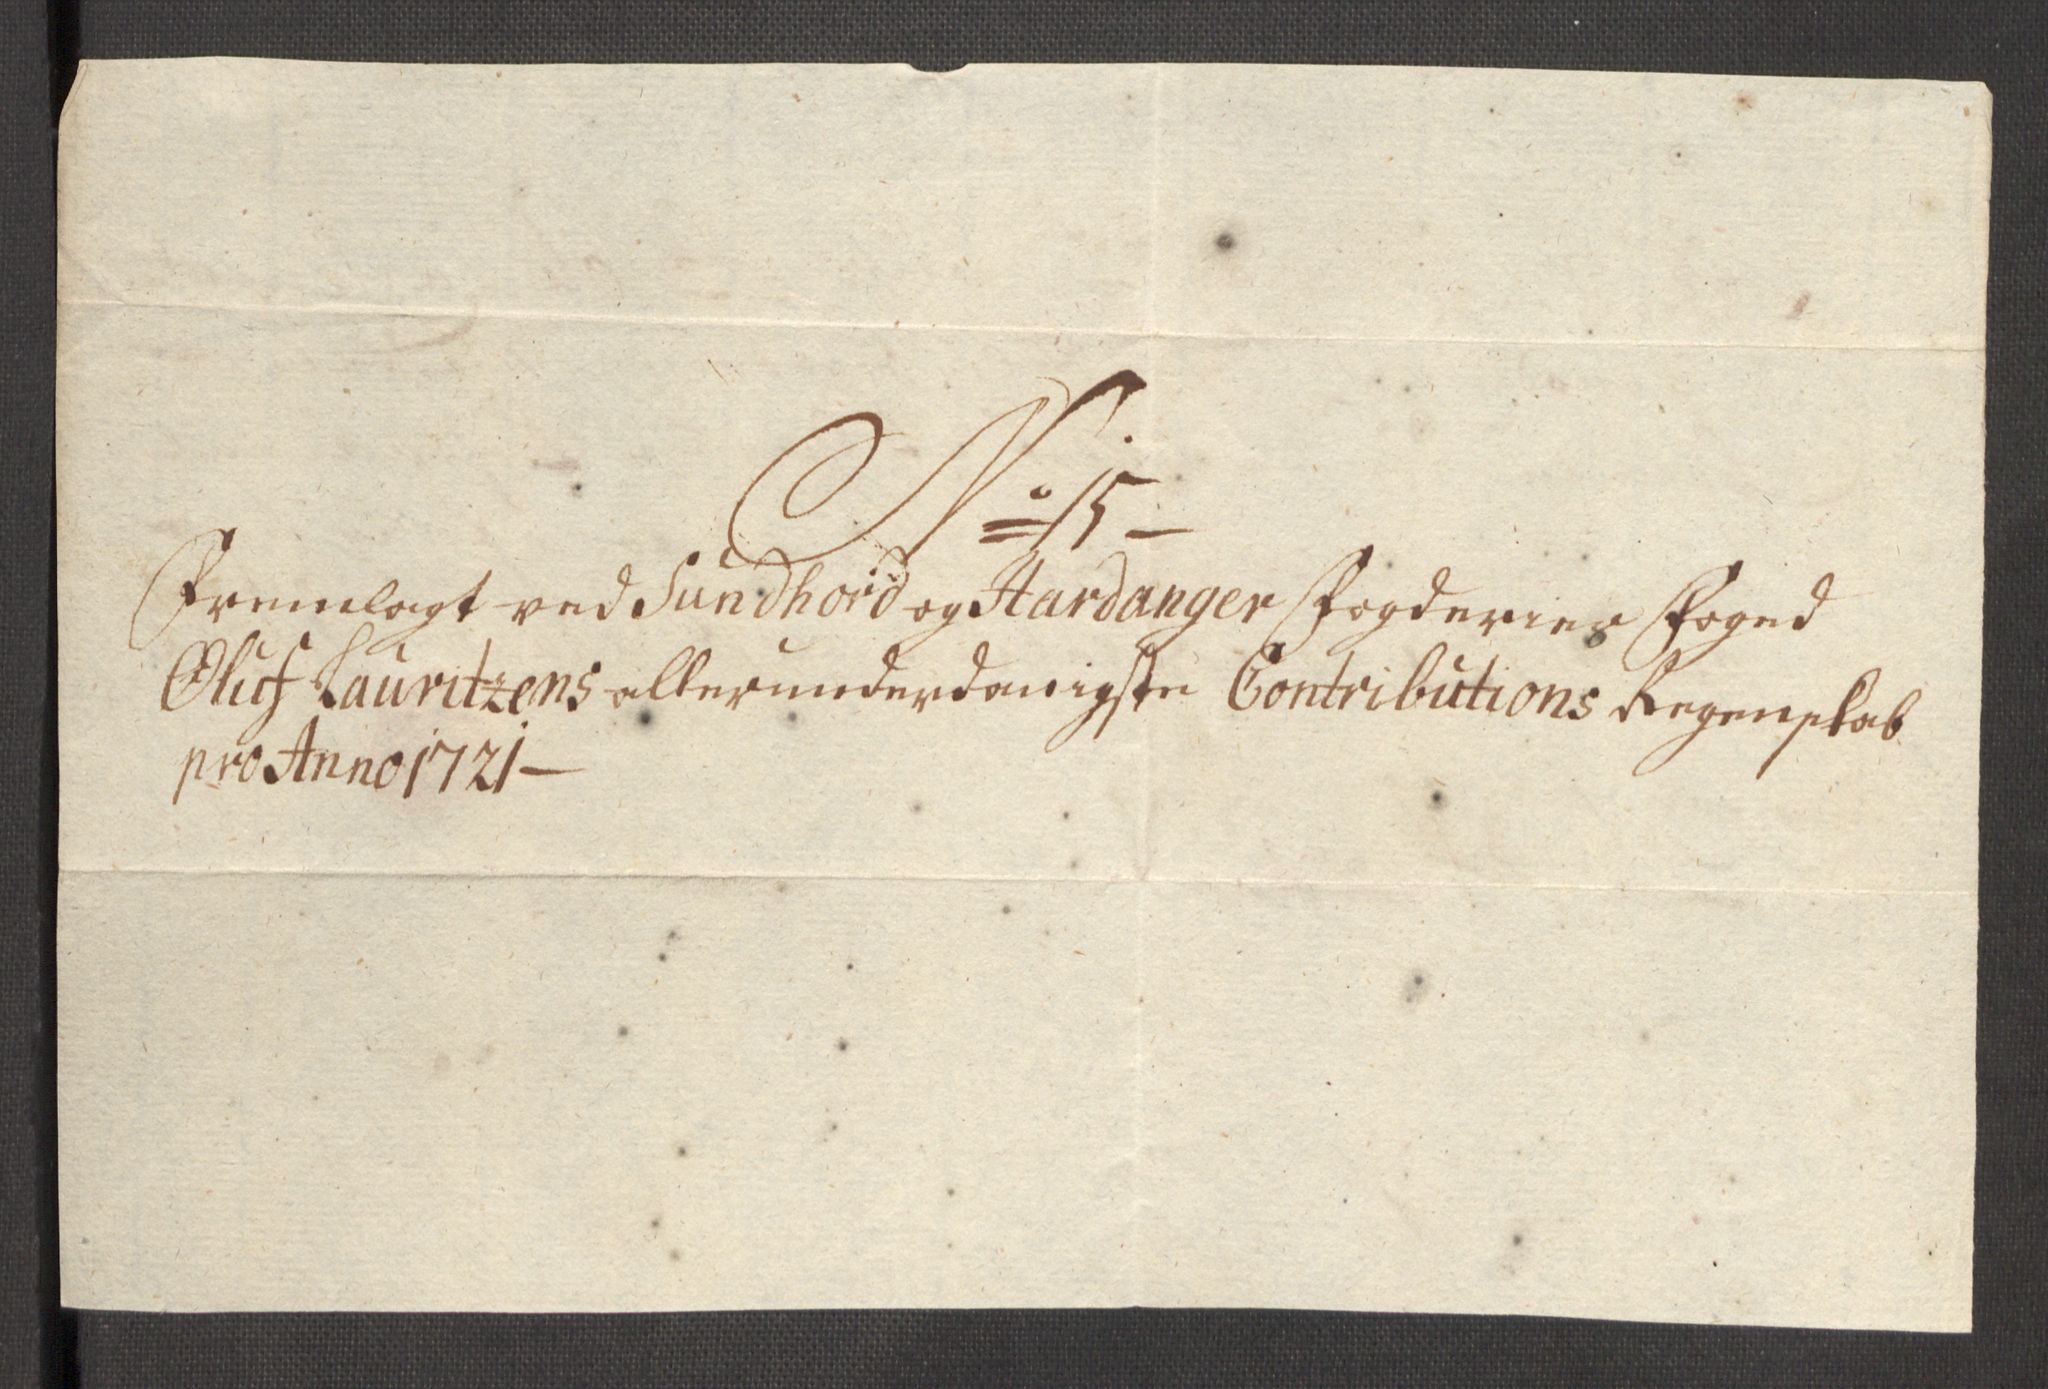 No 15
Fremlagt ved Sundhord og Hardanger Fogderier Foged
Oluf Lauritzens allerunderdanigste Contributions Regenskab
pro Anno 1721